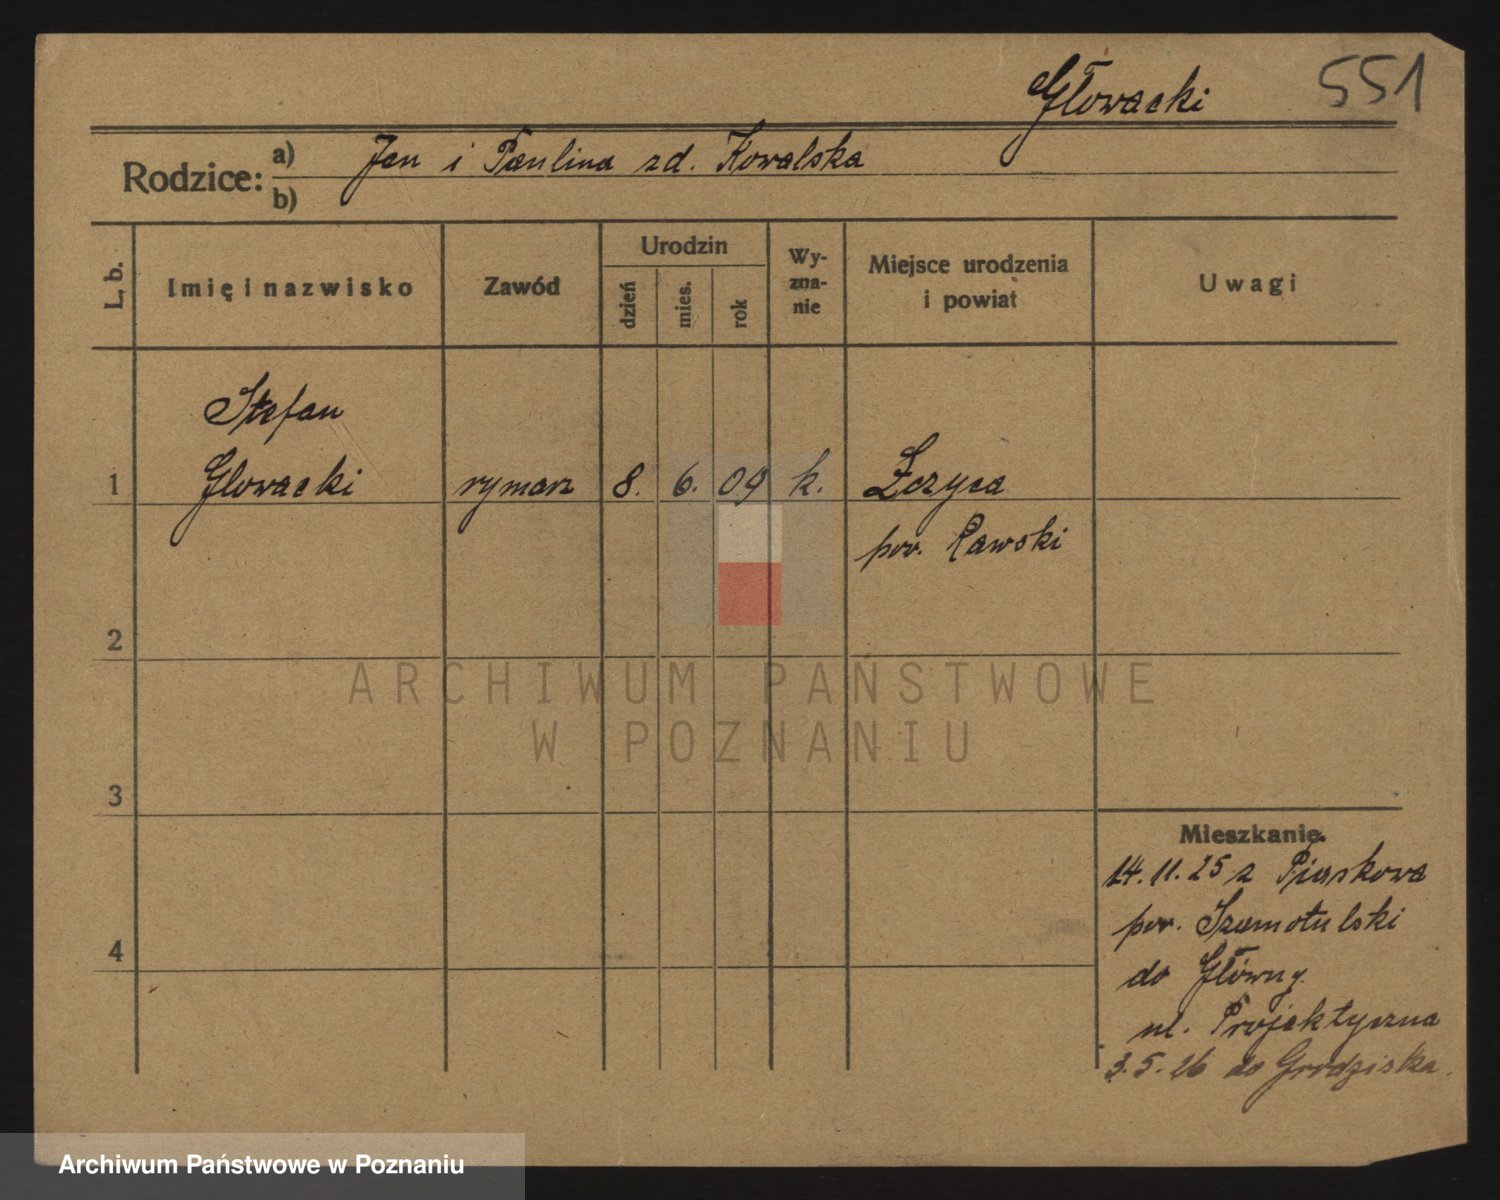 Głowacki 551
Rodzice: a) Jan i Paulina zd. Kowalska
b)
L. b.
Imię i nazwisko
Zawód
Urodzin
dzień
mies.
rok
Wy-
zna-
nie
Miejsce urodzenia
i powiat
Uwagi
Stefan
1 Glowacki rymarz 8. 6. 09 k.
pow. Rawski
2
ARCHIWUM PAŃSTWOWE
W POZNANIU
3
Mieszkanie.
14.11.25 z Piaskowa
pow. Szamotulski
4
do Główny
ul. Projektyczna
3.5.26 do Grodziska.
Archiwum Państwowe w Poznaniu